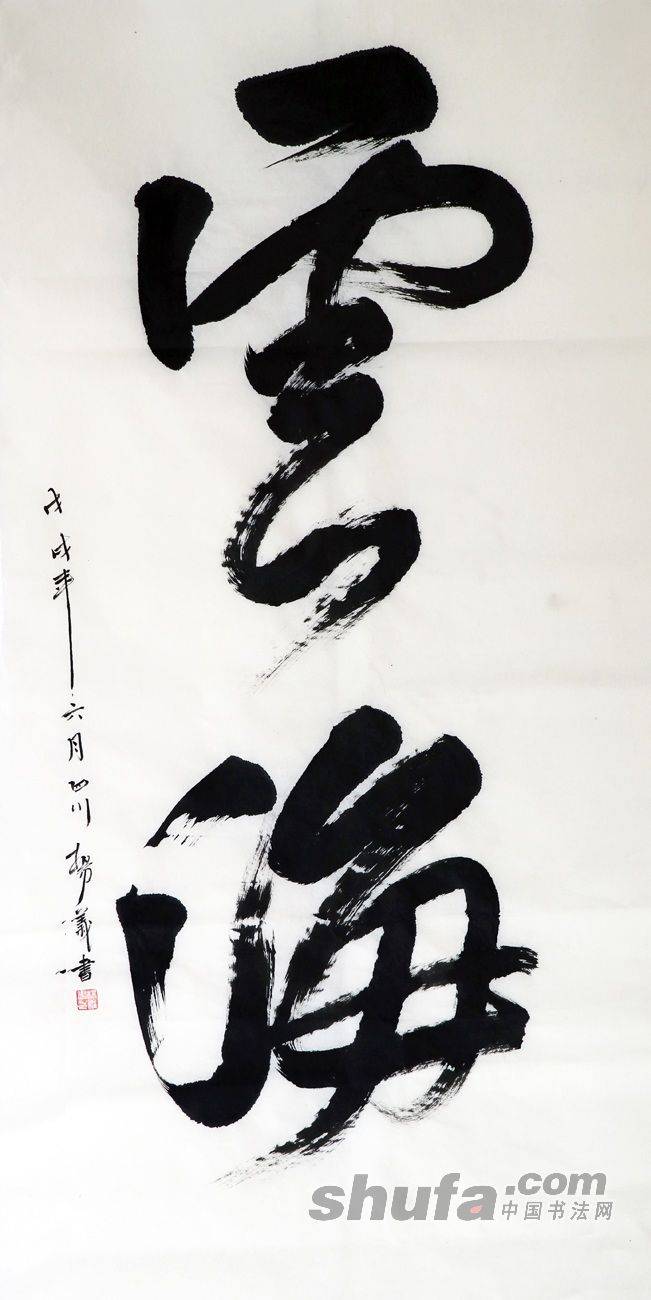 雲海
戊戌年六月四川楊儀書
shufa.com
中国书法网